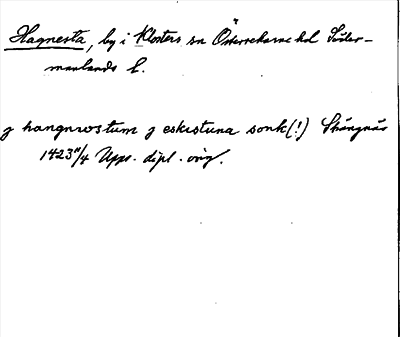 Hagnesta, by i Klosters sn Österrekarne hd Söder-
manlands l.
j hangnrostum j eskistuna sonk(!) Strängnäs
1423 11/4 Upps. dipl. orig.